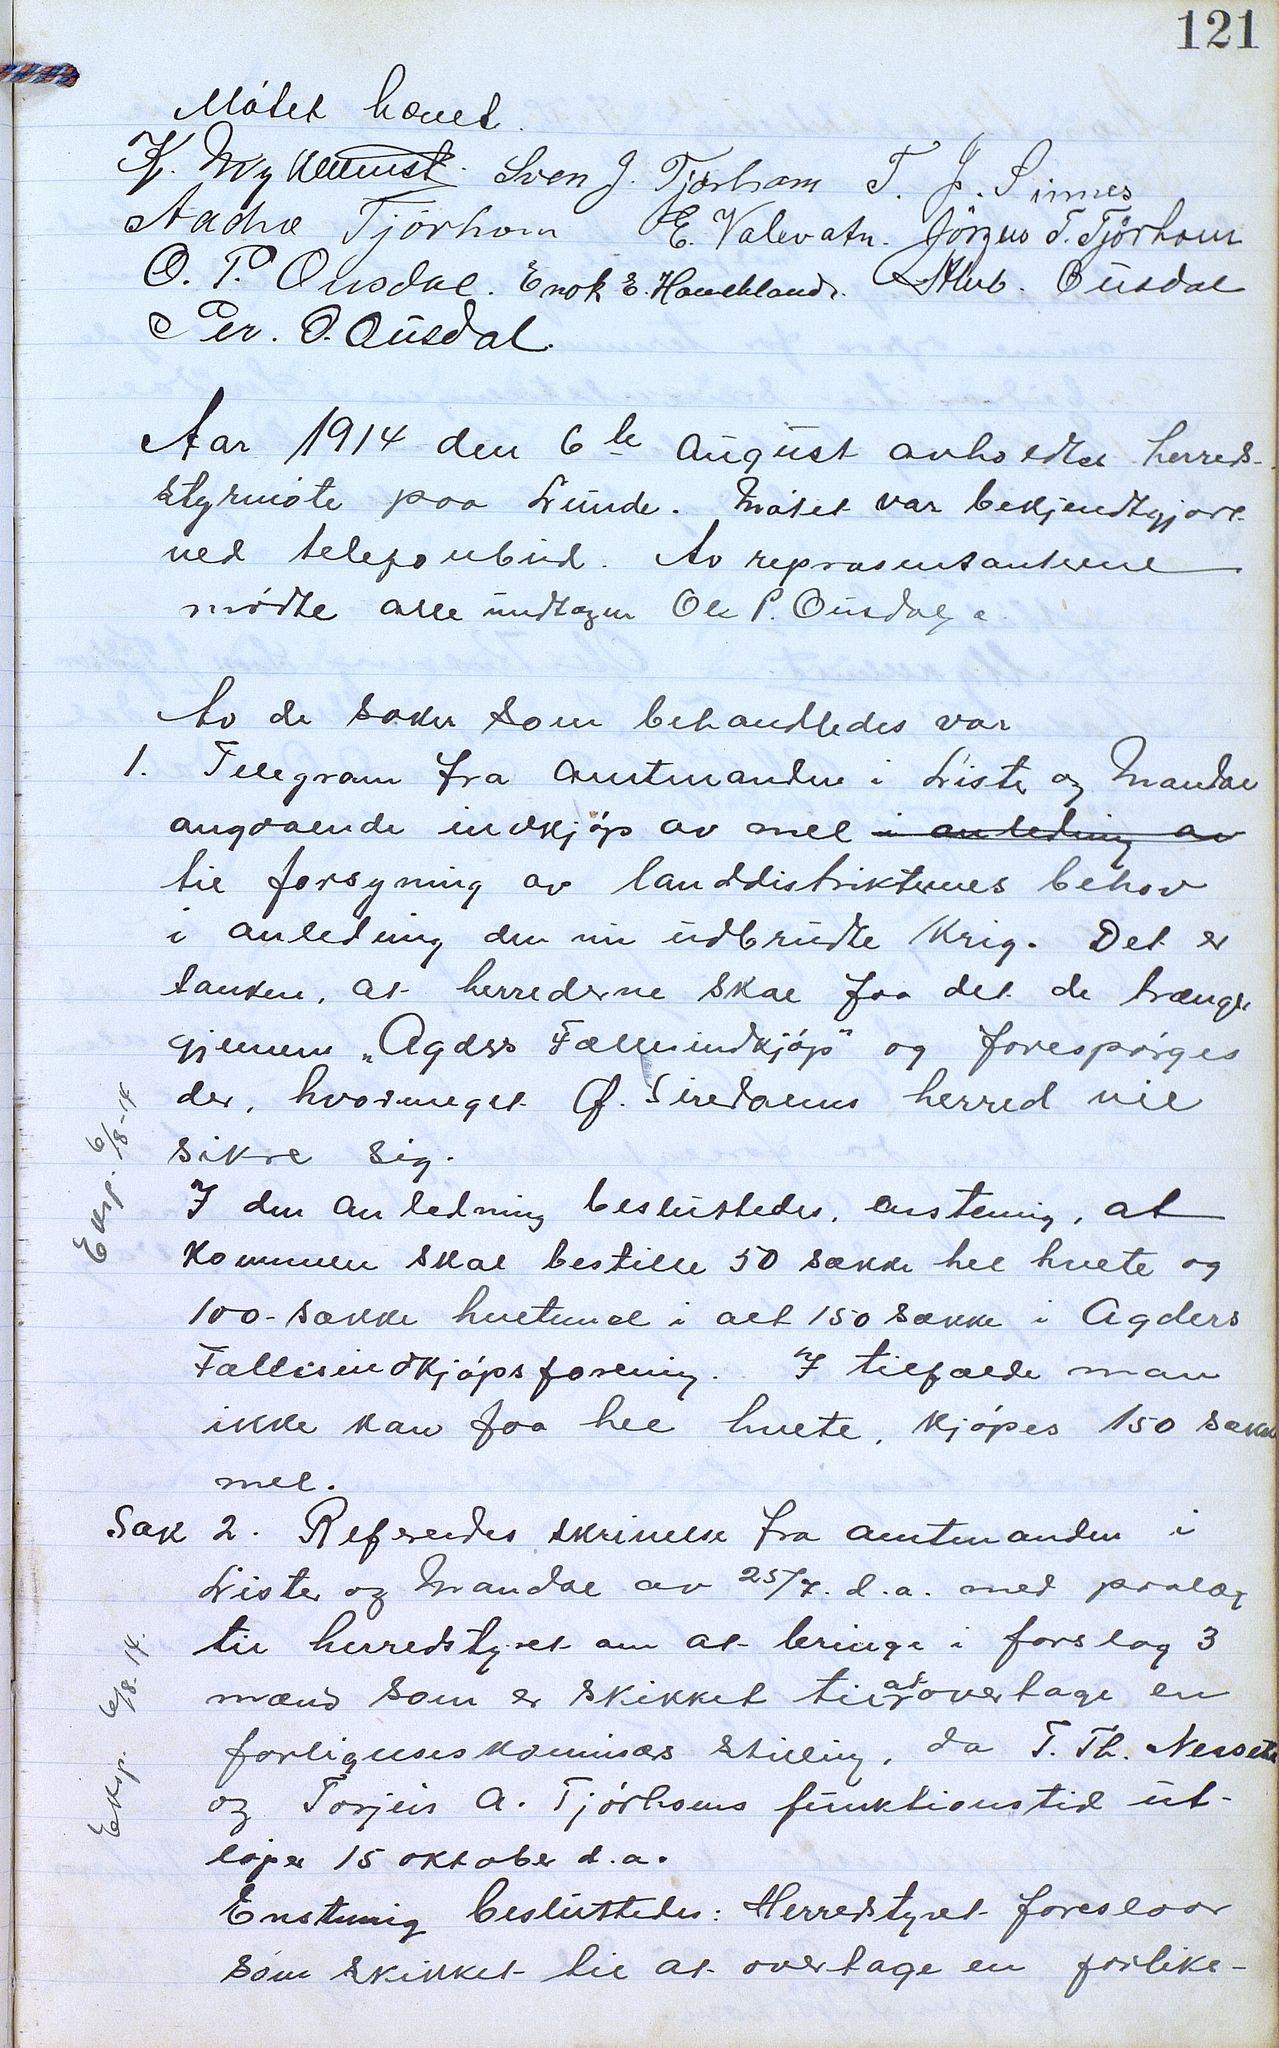 121
Møtet hævet.
K. Myklemyst. Sven J. Tjørhom T. J. Sinnes
Aadne Tjørhom E. Valevatn. Jörgen T. Tjørhom
O. P. Ousdal. Enok E. Haughland. Ousdal
Per. O. Ousdal.
Aar 1914 den 6te august avholdtes herreds-
styrmøte paa Lunde. Møtet var bekjendtgjort
ved telefonbud. Av repræsentanterne
mødte alle undtagen Ole P. Ousdal.
Av de saker som behandledes var
1. Telegram fra amtmanden i Lister og Mandal
angaaende indkjøp av mel i anledning av
til forsyning av landdistrikternes behov
i anledning den nu udbrudte krig. Det er
tanken, at herrederne skal faa det de trænger
gjennem „Agders Fællesindkjøp" og forespørges
der, hvormeget Ø. Siredalens herred vil
sikre sig.
Eksp. 6/8-14
I den anledning besluttedes, enstemig, at
kommunen skal bestille 50 sække hel hvete og
100 sække hvetemel i alt 150 sække i Agders
Fællesindkjøpsforening. I tilfælde man
ikke kan faa hel hvete, kjøpes 150 sække
mel.
Sak 2. Refereredes skrivelse fra amtmanden i
Lister og Mandal av 25/7. d.a. med paalæg
til herredstyret om at bringe i forslag 3
mænd som er skikket til at overtage en
Eksp. 6/8-14.
forligelseskommisærs stilling, da T. Th.
og Torjeis A. Tjørhoms funktionstid ut-
løper 15 oktober d.a.
Enstemig besluttedes: Herredstyret foreslaar
som skikket til at overtage en forlike-